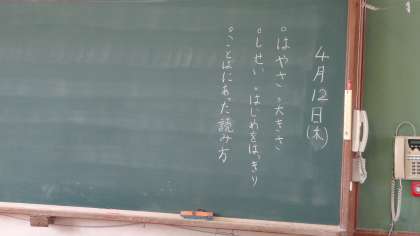 4月12日(木)
。はやさ 。大きさ
。しせい 。はじめをはっきり
。ことばにあった読み方